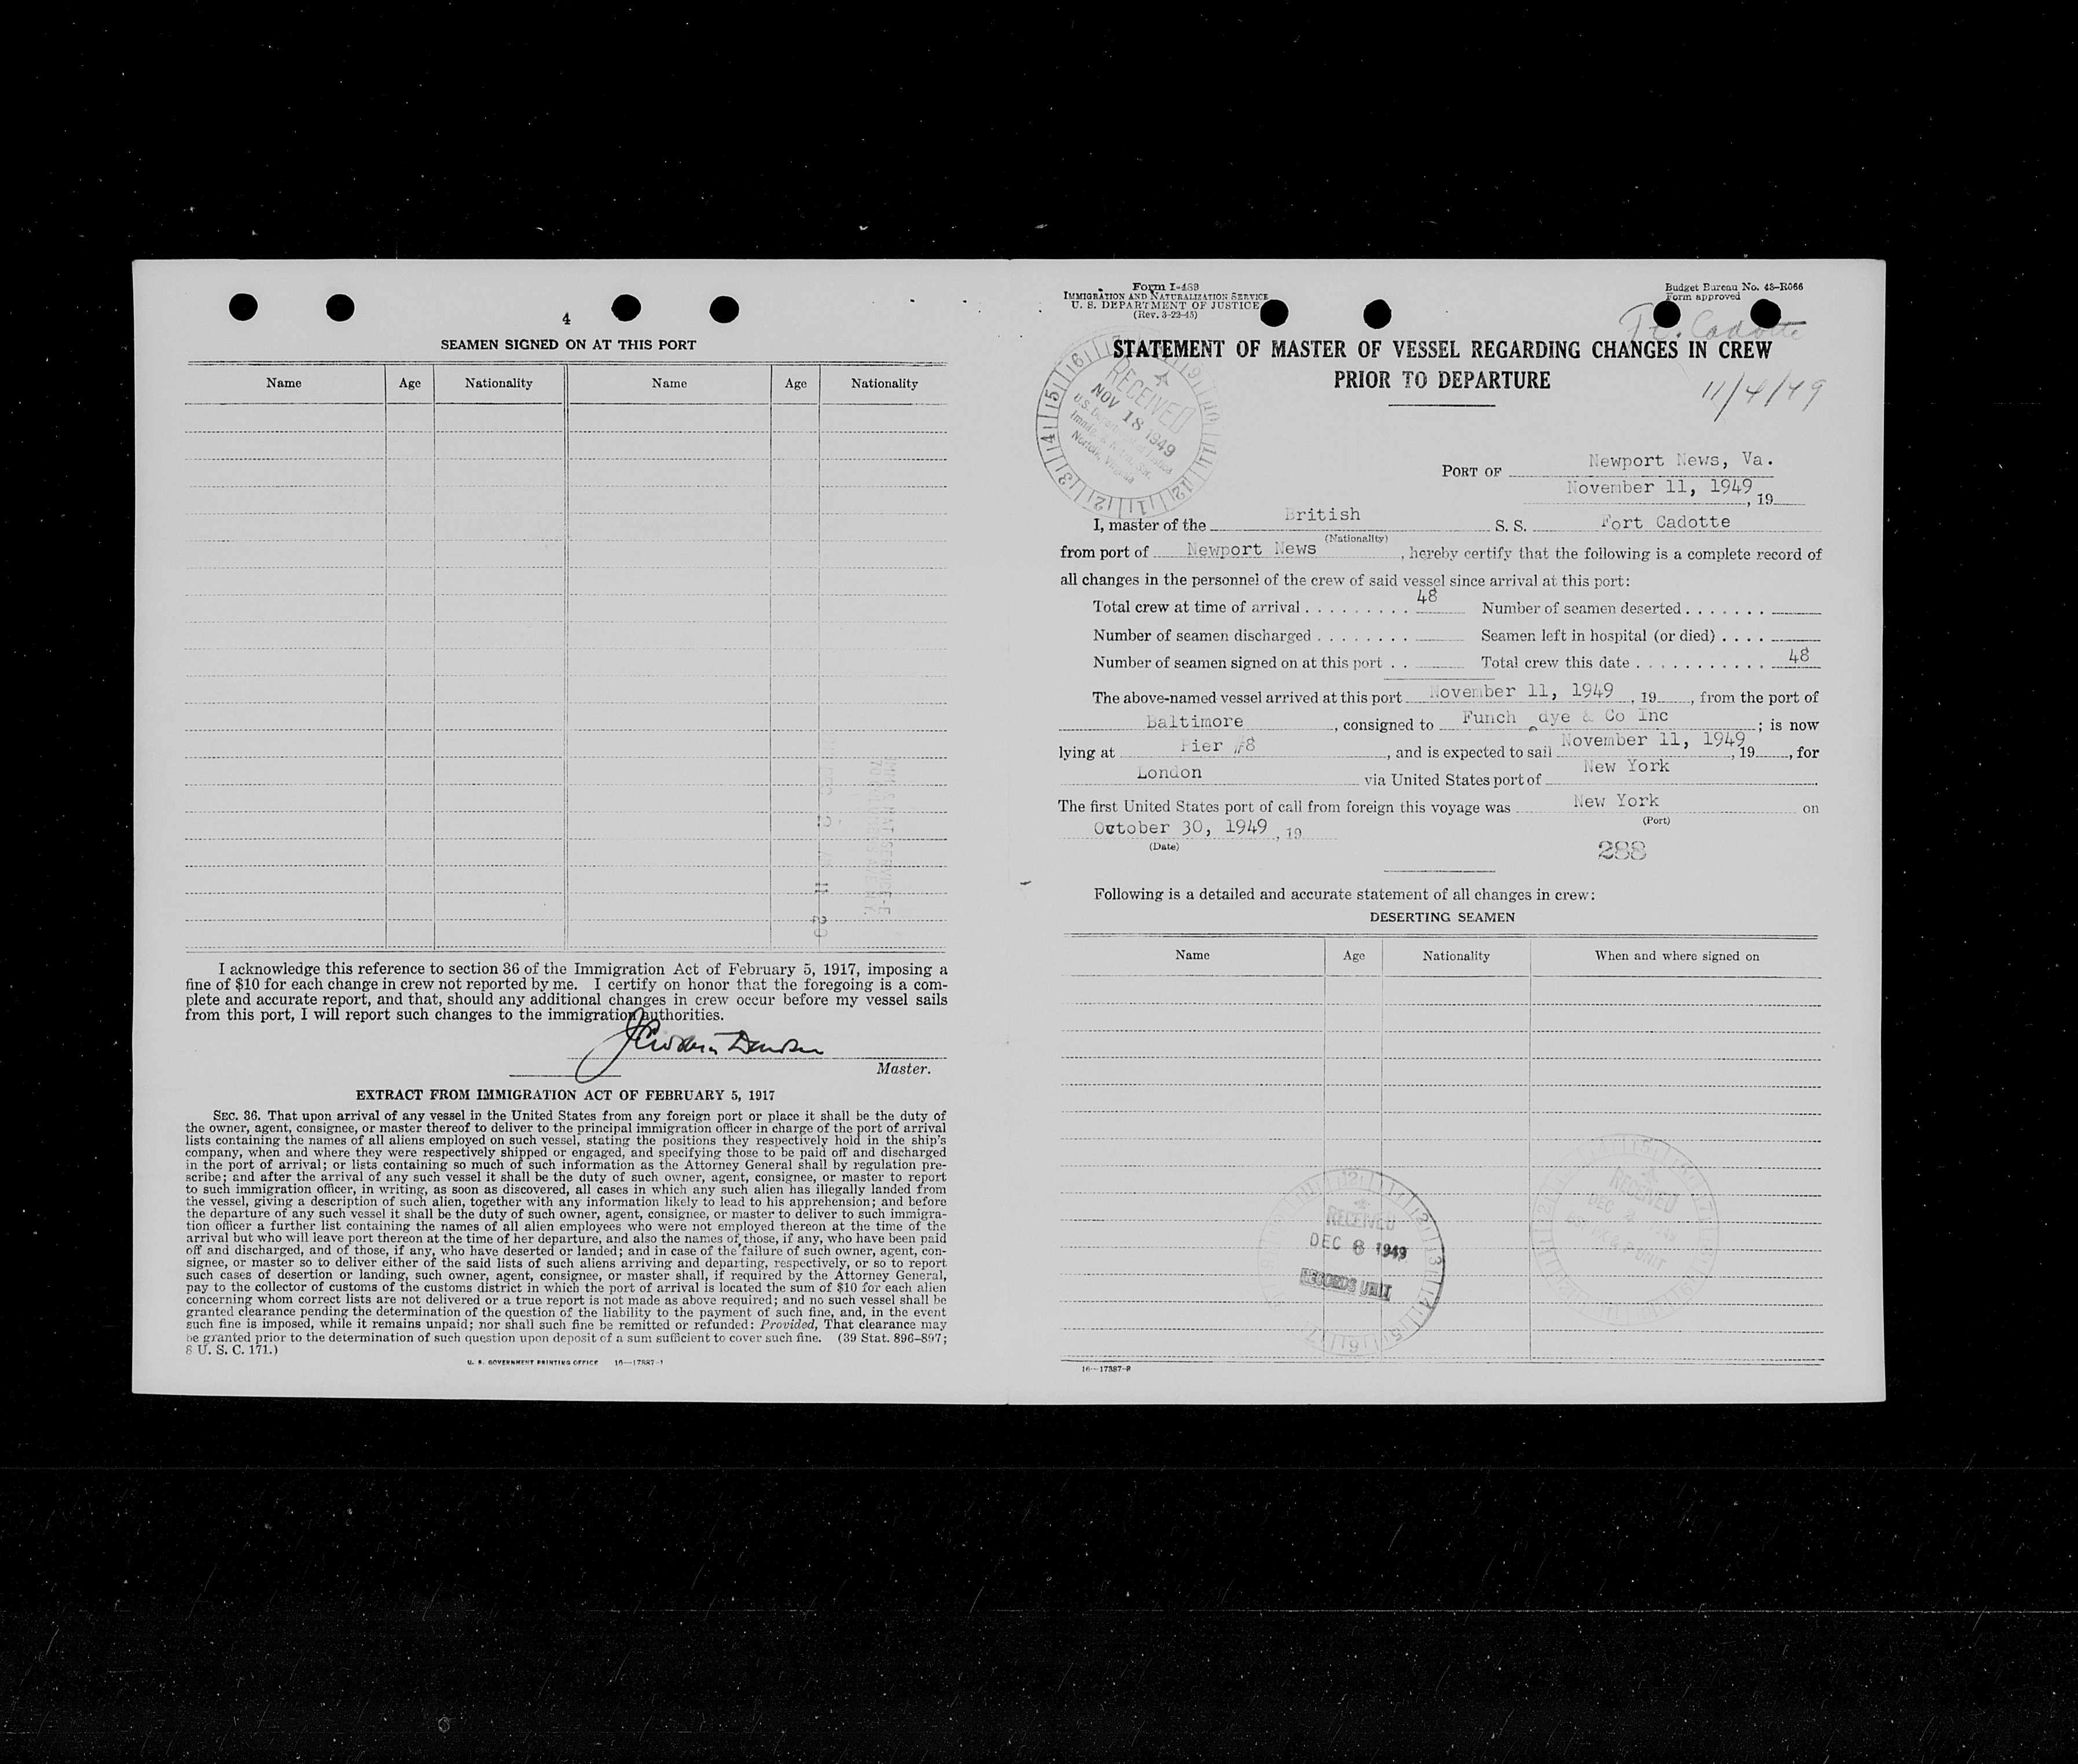 4
SEAMEN SIGNED ON AT THIS PORT
Name Age Nationality Name Age Nationality
I acknowledge this reference to section 36 of the Immigration Act of February 5, 1917, imposing a
fine of $10 for each change in crew not reported by me. I certify on honor that the foregoing is a com-
plete and accurate report, and that, should any additional changes in crew occur before my vessel sails
from this port, I will report such changes to the immigration authorities.
Master.
EXTRACT FROM IMMIGRATION ACT OF FEBRUARY 5, 1917
SEC. 36. That upon arrival of any vessel in the United States from any foreign port or place it shall be the duty of
the owner, agent, consignee, or master thereof to deliver to the principal immigration officer in charge of the port of arrival
lists containing the names of all aliens employed on such vessel, stating the positions they respectively hold in the ship's
company, when and where they were respectively shipped or engaged, and specifying those to be paid off and discharged
in the port of arrival; or lists containing so much of such information as the Attorney General shall by regulation pre-
scribe; and after the arrival of any such vessel it shall be the duty of such owner, agent, consignee, or master to report
to such immigration officer, in writing, as soon as discovered, all cases in which any such alien has illegally landed from
the vessel, giving a description of such alien, together with any information likely to lead to his apprehension; and before
the departure of any such vessel it shall be the duty of such owner, agent, consignee, or master to deliver to such immigra-
tion officer a further list containing the names of all alien employees who were not employed thereon at the time of the
arrival but who will leave port thereon at the time of her departure, and also the names of those, if any, who have been paid
off and discharged, and of those, if any, who have deserted or landed; and in case of the failure of such owner, agent, con-
signee, or master so to deliver either of the said lists of such aliens arriving and departing, respectively, or so to report
such cases of desertion or landing, such owner, agent, consignee, or master shall, if required by the Attorney General,
pay to the collector of customs of the customs district in which the port of arrival is located the sum of $10 for each alien
concerning whom correct lists are not delivered or a true report is not made as above required; and no such vessel shall be
granted clearance pending the determination of the question of the liability to the payment of such fine, and, in the event
such fine is imposed, while it remains unpaid; nor shall such fine be remitted or refunded: Provided, That clearance may
be granted prior to the determination of such question upon deposit of a sum sufficient to cover such fine. (39 Stat. 896-897;
8 U. S. C. 171.)
U. S. GOVERNMENT PRINTING OFFICE 16—17887-1
Form I-489
IMMIGRATION AND NATURALIZATION SERVICE
U. S. DEPARTMENT OF JUSTICE
(Rev. 3-22-45)
Budget Bureau No. 43-R066
Form approved
Ft. Cadotte
STATEMENT OF MASTER OF VESSEL REGARDING CHANGES IN CREW
PRIOR TO DEPARTURE
11/4/49
RECEIVED
NOV 18 1949
Norfolk, Virginia
PORT OF Newport News, Va.
November 11, 1949, 19
I, master of the British S. S. Fort Cadotte
(Nationality)
from port of Newport News, hereby certify that the following is a complete record of
all changes in the personnel of the crew of said vessel since arrival at this port:
Total crew at time of arrival 48 Number of seamen deserted
Number of seamen discharged Seamen left in hospital (or died)
Number of seamen signed on at this port Total crew this date 48
The above-named vessel arrived at this port November 11, 1949, 19, from the port of
Baltimore, consigned to Funch dye & Co Inc; is now
lying at Pier #8, and is expected to sail November 11, 1949, 19, for
London via United States port of New York
The first United States port of call from foreign this voyage was New York on
(Port)
October 30, 1949, 19
(Date)
288
Following is a detailed and accurate statement of all changes in crew:
DESERTING SEAMEN
Name Age Nationality When and where signed on
RECEIVED
DEC 2 1949
RECEIVED
DEC 8 1949
RECORDS UNIT
16—17887-2